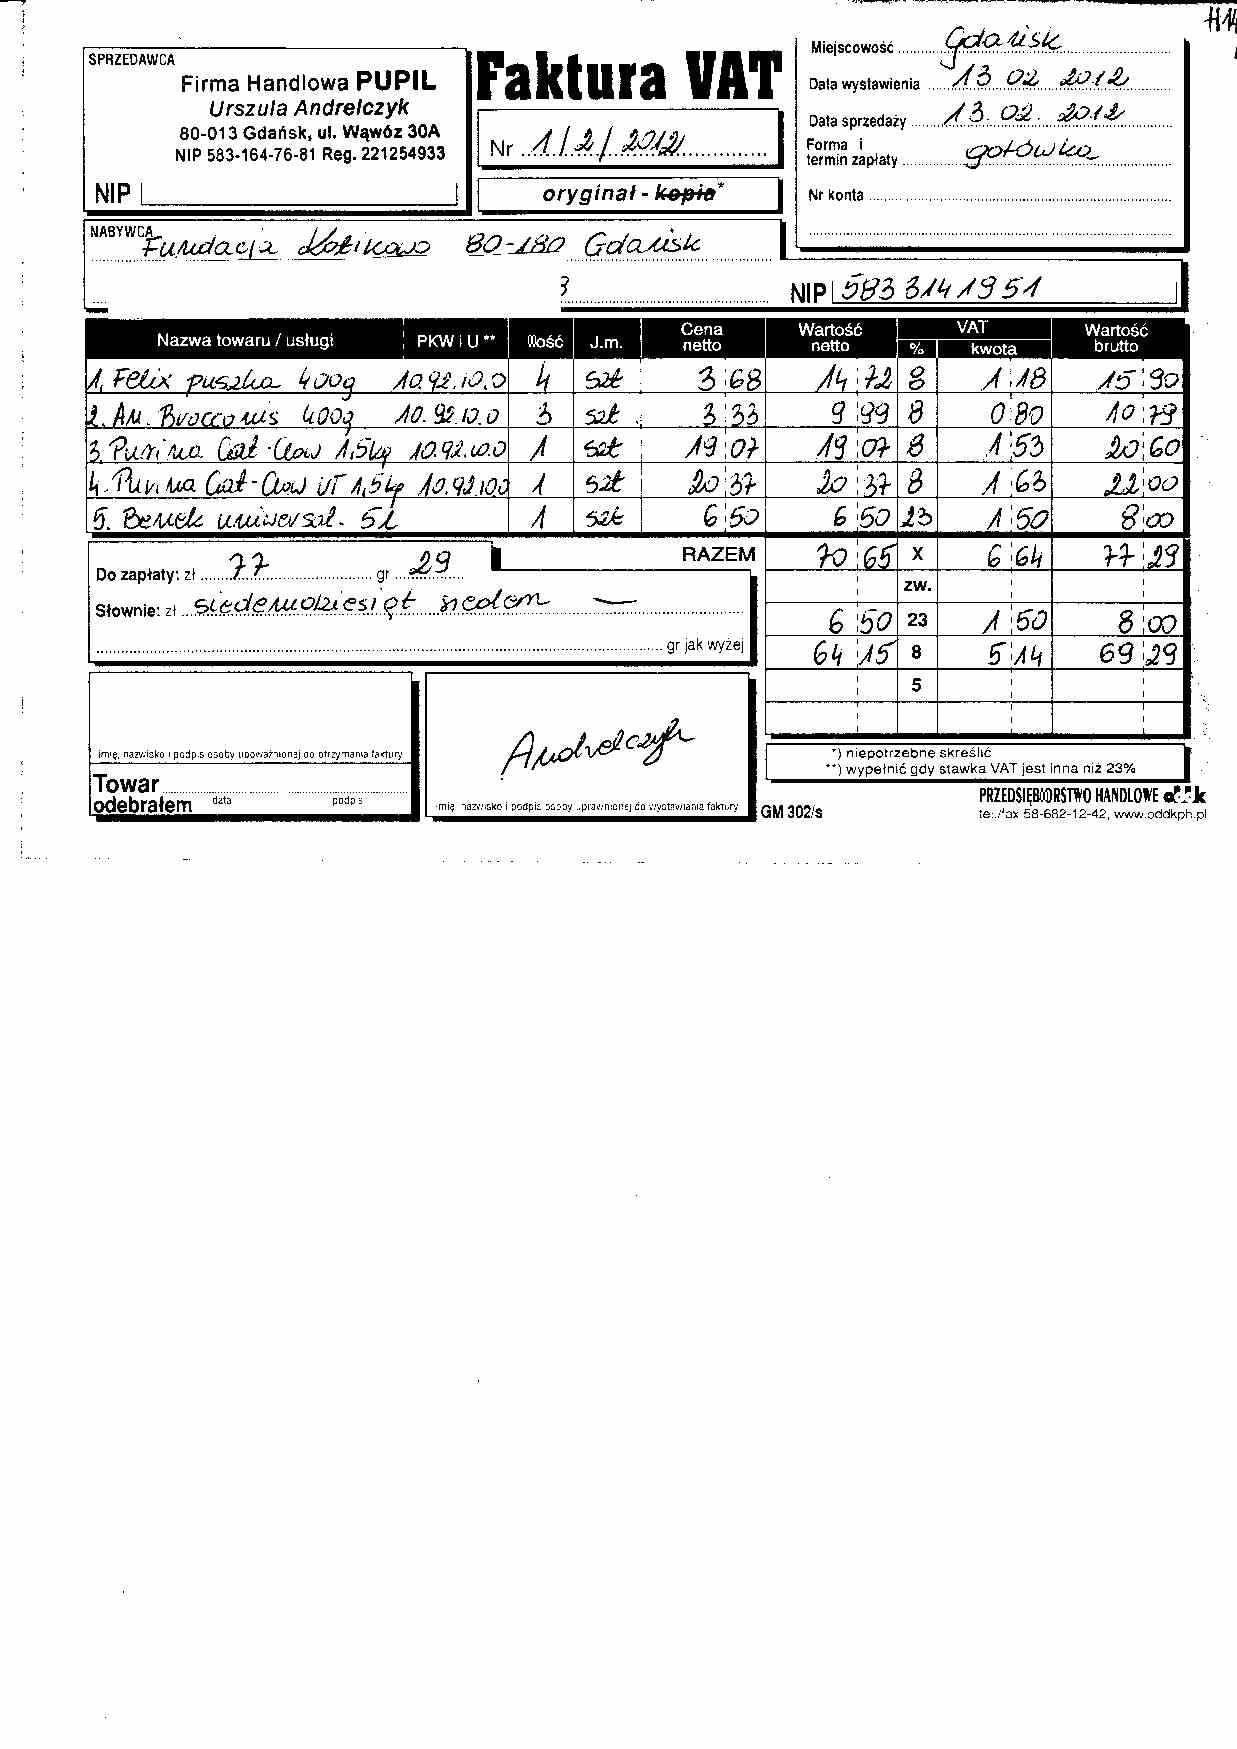 SPRZEDAWCA
Firma Handlowa PUPIL
Urszula Andrelczyk
80-013 Gdańsk, ul. Wąwóz 30A
NIP 583-164-76-81 Reg. 221254933
NIP
Faktura VAT
Nr 1/2/2012
oryginał - kopia*
Miejscowość Gdańsk
Data wystawienia 13 02 2012
Data sprzedaży 13. 02. 2012
Forma i termin zapłaty gotówka
Nr konta
NABYWCA Fundacja Kotikowo 80-180 Gdańsk
3
NIP 583 314 19 51
Nazwa towaru / usługi PKW i U ** Ilość J.m. Cena netto Wartość netto VAT % kwota Wartość brutto
1. Felix puszka 400g 10.92.10.0 4 szt 3 68 14 72 8 1 18 15 90
2. An. Brocconis 400g 10.92.10.0 3 szt 3 33 9 99 8 0 80 10 79
3. Purina Cat-Chow 1,5kg 10.92.10.0 1 szt 19 07 19 07 8 1 53 20 60
4. Purina Cat-Chow UT 1,5kg 10.92.10.0 1 szt 20 37 20 37 8 1 63 22 00
5. Benek uniwersal. 5L 1 szt 6 50 6 50 23 1 50 8 00
RAZEM 70 65 x 6 64 77 29
Do zapłaty: zł 77 gr 29
zw.
Słownie: zł siedemdziesiąt siedem —
6 50 23 1 50 8 00
gr jak wyżej
64 15 8 5 14 69 29
5
imię, nazwisko i podpis osoby upoważnionej do otrzymania faktury
Andrelczyk
*) niepotrzebne skreślić
**) wypełnić gdy stawka VAT jest inna niż 23%
Towar odebrałem
data podpis
imię, nazwisko i podpis osoby uprawnionej do wystawiania faktury
GM 302/s
PRZEDSIĘBIORSTWO HANDLOWE
tel./fax 58-682-12-42, www.oddkph.pl